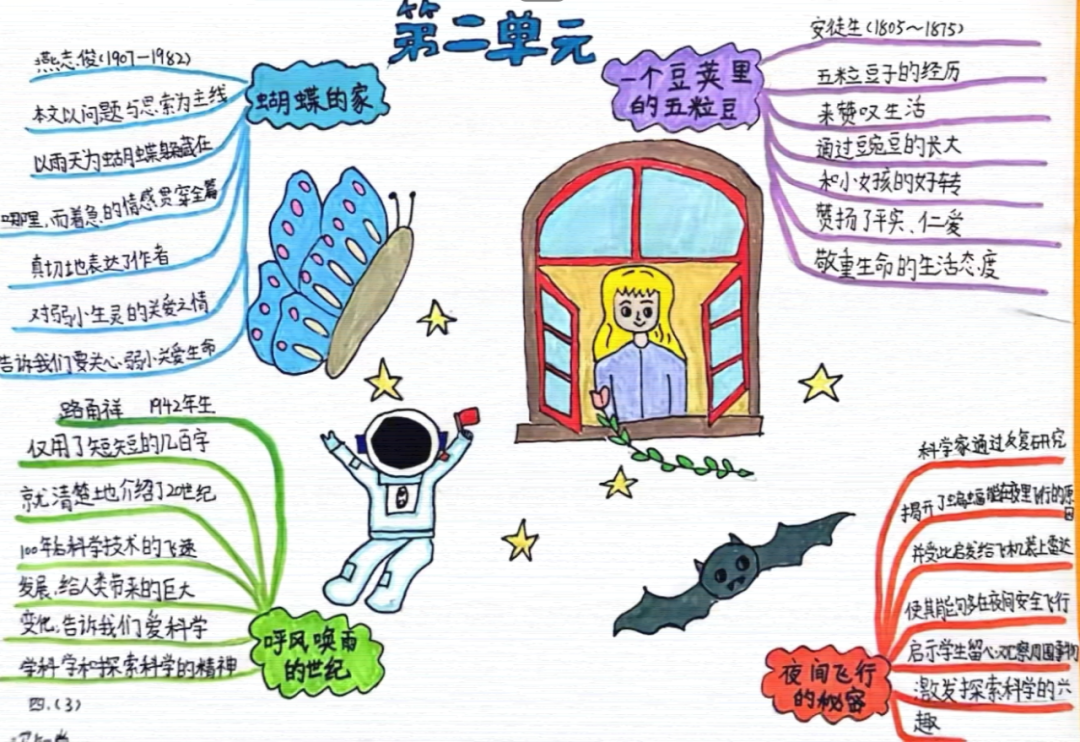 第二单元
蝴蝶的家
燕志俊(1907—1982)
本文以问题与思索为主线
以雨天为蝴蝶躲藏在
哪里,而着急的情感贯穿全篇
真切地表达了作者
对弱小生灵的关爱之情
告诉我们要关心弱小关爱生命
一个豆荚里
的五粒豆
安徒生(1805~1875)
五粒豆子的经历
来赞叹生活
通过豆豌豆的长大
和小女孩的好转
赞扬了平实、仁爱
敬重生命的生活态度
呼风唤雨
的世纪
路甬祥 1942年生
仅用了短短的几百字
就清楚地介绍了20世纪
100年后科学技术的飞速
发展,给人类带来的巨大
变化,告诉我们爱科学
学科学和探索科学的精神
夜间飞行
的秘密
科学家通过反复研究
揭开了蝙蝠能在夜里飞行的原因
并受此启发给飞机装上雷达
使其能够在夜间安全飞行
启示学生留心观察周围事物
激发探索科学的兴
趣
四.(3)